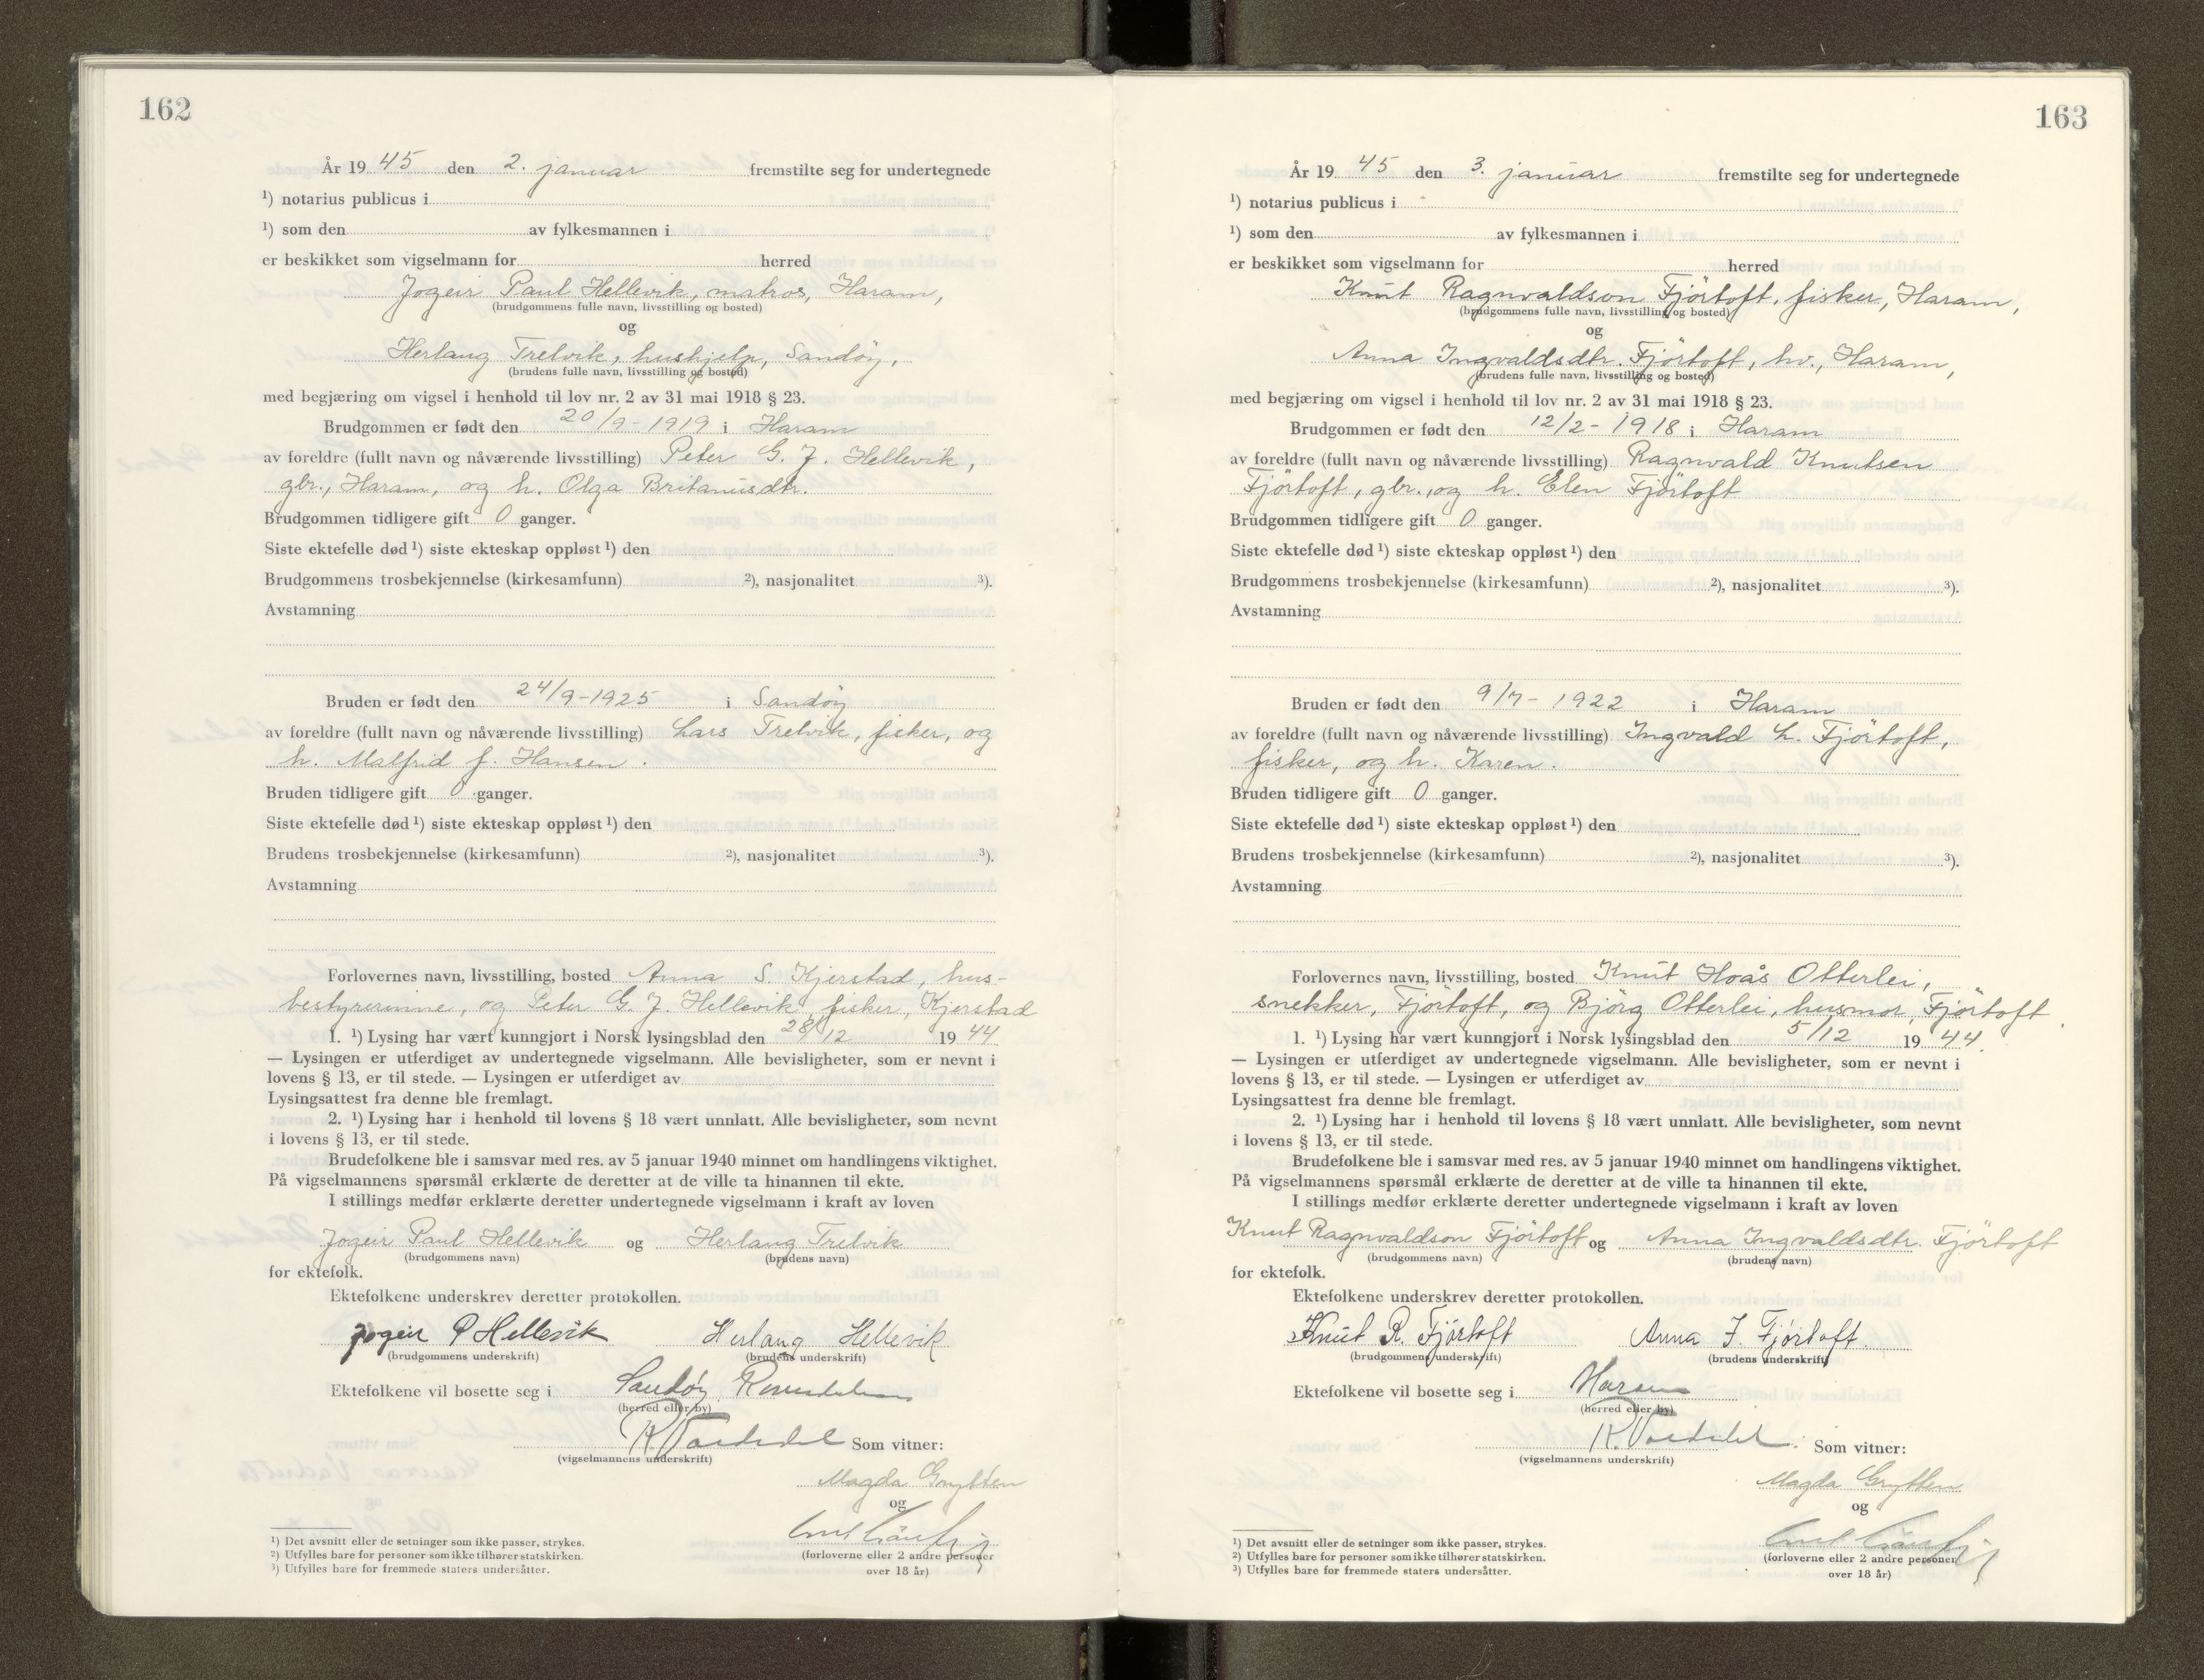 162
År 19 45 den 2. januar fremstilte seg for undertegnede
¹) notarius publicus i
¹) som den av fylkesmannen i
er beskikket som vigselmann for herred
Jogeir Paul Hellevik, matros, Haram,
(brudgommens fulle navn, livsstilling og bosted)
og
Herlaug Trelvik, hushjelp, Sandöy,
(brudens fulle navn, livsstilling og bosted)
med begjæring om vigsel i henhold til lov nr. 2 av 31 mai 1918 § 23.
Brudgommen er født den 20/9-1919 i Haram
av foreldre (fullt navn og nåværende livsstilling) Peter G. J. Hellevik,
gbr., Haram, og h. Olga Britanusdtr.
Brudgommen tidligere gift 0 ganger.
Siste ektefelle død ¹) siste ekteskap oppløst ¹) den
Brudgommens trosbekjennelse (kirkesamfunn) ²), nasjonalitet ³).
Avstamning
Bruden er født den 24/9-1925 i Sandöy
av foreldre (fullt navn og nåværende livsstilling) Lars Trelvik, fisker, og
h. Malfrid f. Hansen.
Bruden tidligere gift 0 ganger.
Siste ektefelle død ¹) siste ekteskap oppløst ¹) den
Brudens trosbekjennelse (kirkesamfunn) ²), nasjonalitet ³).
Avstamning
Forlovernes navn, livsstilling, bosted Anna S. Kjerstad, hus-
bestyrerinne, og Peter G. J. Hellevik, fisker, Kjerstad
1. ¹) Lysing har vært kunngjort i Norsk lysingsblad den 28/12 19 44
— Lysingen er utferdiget av undertegnede vigselmann. Alle bevisligheter, som er nevnt i
lovens § 13, er til stede. — Lysingen er utferdiget av
Lysingsattest fra denne ble fremlagt.
2. ¹) Lysing har i henhold til lovens § 18 vært unnlatt. Alle bevisligheter, som nevnt
i lovens § 13, er til stede.
Brudefolkene ble i samsvar med res. av 5 januar 1940 minnet om handlingens viktighet.
På vigselmannens spørsmål erklærte de deretter at de ville ta hinannen til ekte.
I stillings medfør erklærte deretter undertegnede vigselmann i kraft av loven
Jogeir Paul Hellevik og Herlaug Trelvik
(brudgommens navn) (brudens navn)
for ektefolk.
Ektefolkene underskrev deretter protokollen.
Jogeir P Hellevik Herlaug Hellevik
(brudgommens underskrift) (brudens underskrift)
Ektefolkene vil bosette seg i Sandöy Romsdalen
(herred eller by)
Som vitner:
(vigselmannens underskrift)
Magda Grytten
og
(forloverne eller 2 andre personer
over 18 år)
¹) Det avsnitt eller de setninger som ikke passer, strykes.
²) Utfylles bare for personer som ikke tilhører statskirken.
³) Utfylles bare for fremmede staters undersåtter.
163
År 19 45 den 3. januar fremstilte seg for undertegnede
¹) notarius publicus i
¹) som den av fylkesmannen i
er beskikket som vigselmann for herred
Knut Ragnvaldson Fjörtoft, fisker, Haram,
(brudgommens fulle navn, livsstilling og bosted)
og
Anna Ingvaldsdtr. Fjörtoft, hv., Haram,
(brudens fulle navn, livsstilling og bosted)
med begjæring om vigsel i henhold til lov nr. 2 av 31 mai 1918 § 23.
Brudgommen er født den 12/2-1918 i Haram
av foreldre (fullt navn og nåværende livsstilling) Ragnvald Knutsen
Fjörtoft, gbr., og h. Elen Fjörtoft
Brudgommen tidligere gift 0 ganger.
Siste ektefelle død ¹) siste ekteskap oppløst ¹) den
Brudgommens trosbekjennelse (kirkesamfunn) ²), nasjonalitet ³).
Avstamning
Bruden er født den 9/7-1922 i Haram
av foreldre (fullt navn og nåværende livsstilling) Ingvald L. Fjörtoft,
fisker, og h. Karen.
Bruden tidligere gift 0 ganger.
Siste ektefelle død ¹) siste ekteskap oppløst ¹) den
Brudens trosbekjennelse (kirkesamfunn) ²), nasjonalitet ³).
Avstamning
Forlovernes navn, livsstilling, bosted Knut Hoås Otterlei,
snekker, Fjörtoft, og Björg Otterlei, husmor, Fjörtoft.
1. ¹) Lysing har vært kunngjort i Norsk lysingsblad den 5/12 19 44.
— Lysingen er utferdiget av undertegnede vigselmann. Alle bevisligheter, som er nevnt i
lovens § 13, er til stede. — Lysingen er utferdiget av
Lysingsattest fra denne ble fremlagt.
2. ¹) Lysing har i henhold til lovens § 18 vært unnlatt. Alle bevisligheter, som nevnt
i lovens § 13, er til stede.
Brudefolkene ble i samsvar med res. av 5 januar 1940 minnet om handlingens viktighet.
På vigselmannens spørsmål erklærte de deretter at de ville ta hinannen til ekte.
I stillings medfør erklærte deretter undertegnede vigselmann i kraft av loven
Knut Ragnvaldson Fjörtoft og Anna Ingvaldsdtr. Fjörtoft
(brudgommens navn) (brudens navn)
for ektefolk.
Ektefolkene underskrev deretter protokollen.
Knut R. Fjörtoft Anna I. Fjörtoft.
(brudgommens underskrift) (brudens underskrift)
Ektefolkene vil bosette seg i Haram
(herred eller by)
Som vitner:
(vigselmannens underskrift)
Magda Grytten
og
(forloverne eller 2 andre personer
over 18 år)
¹) Det avsnitt eller de setninger som ikke passer, strykes.
²) Utfylles bare for personer som ikke tilhører statskirken.
³) Utfylles bare for fremmede staters undersåtter.